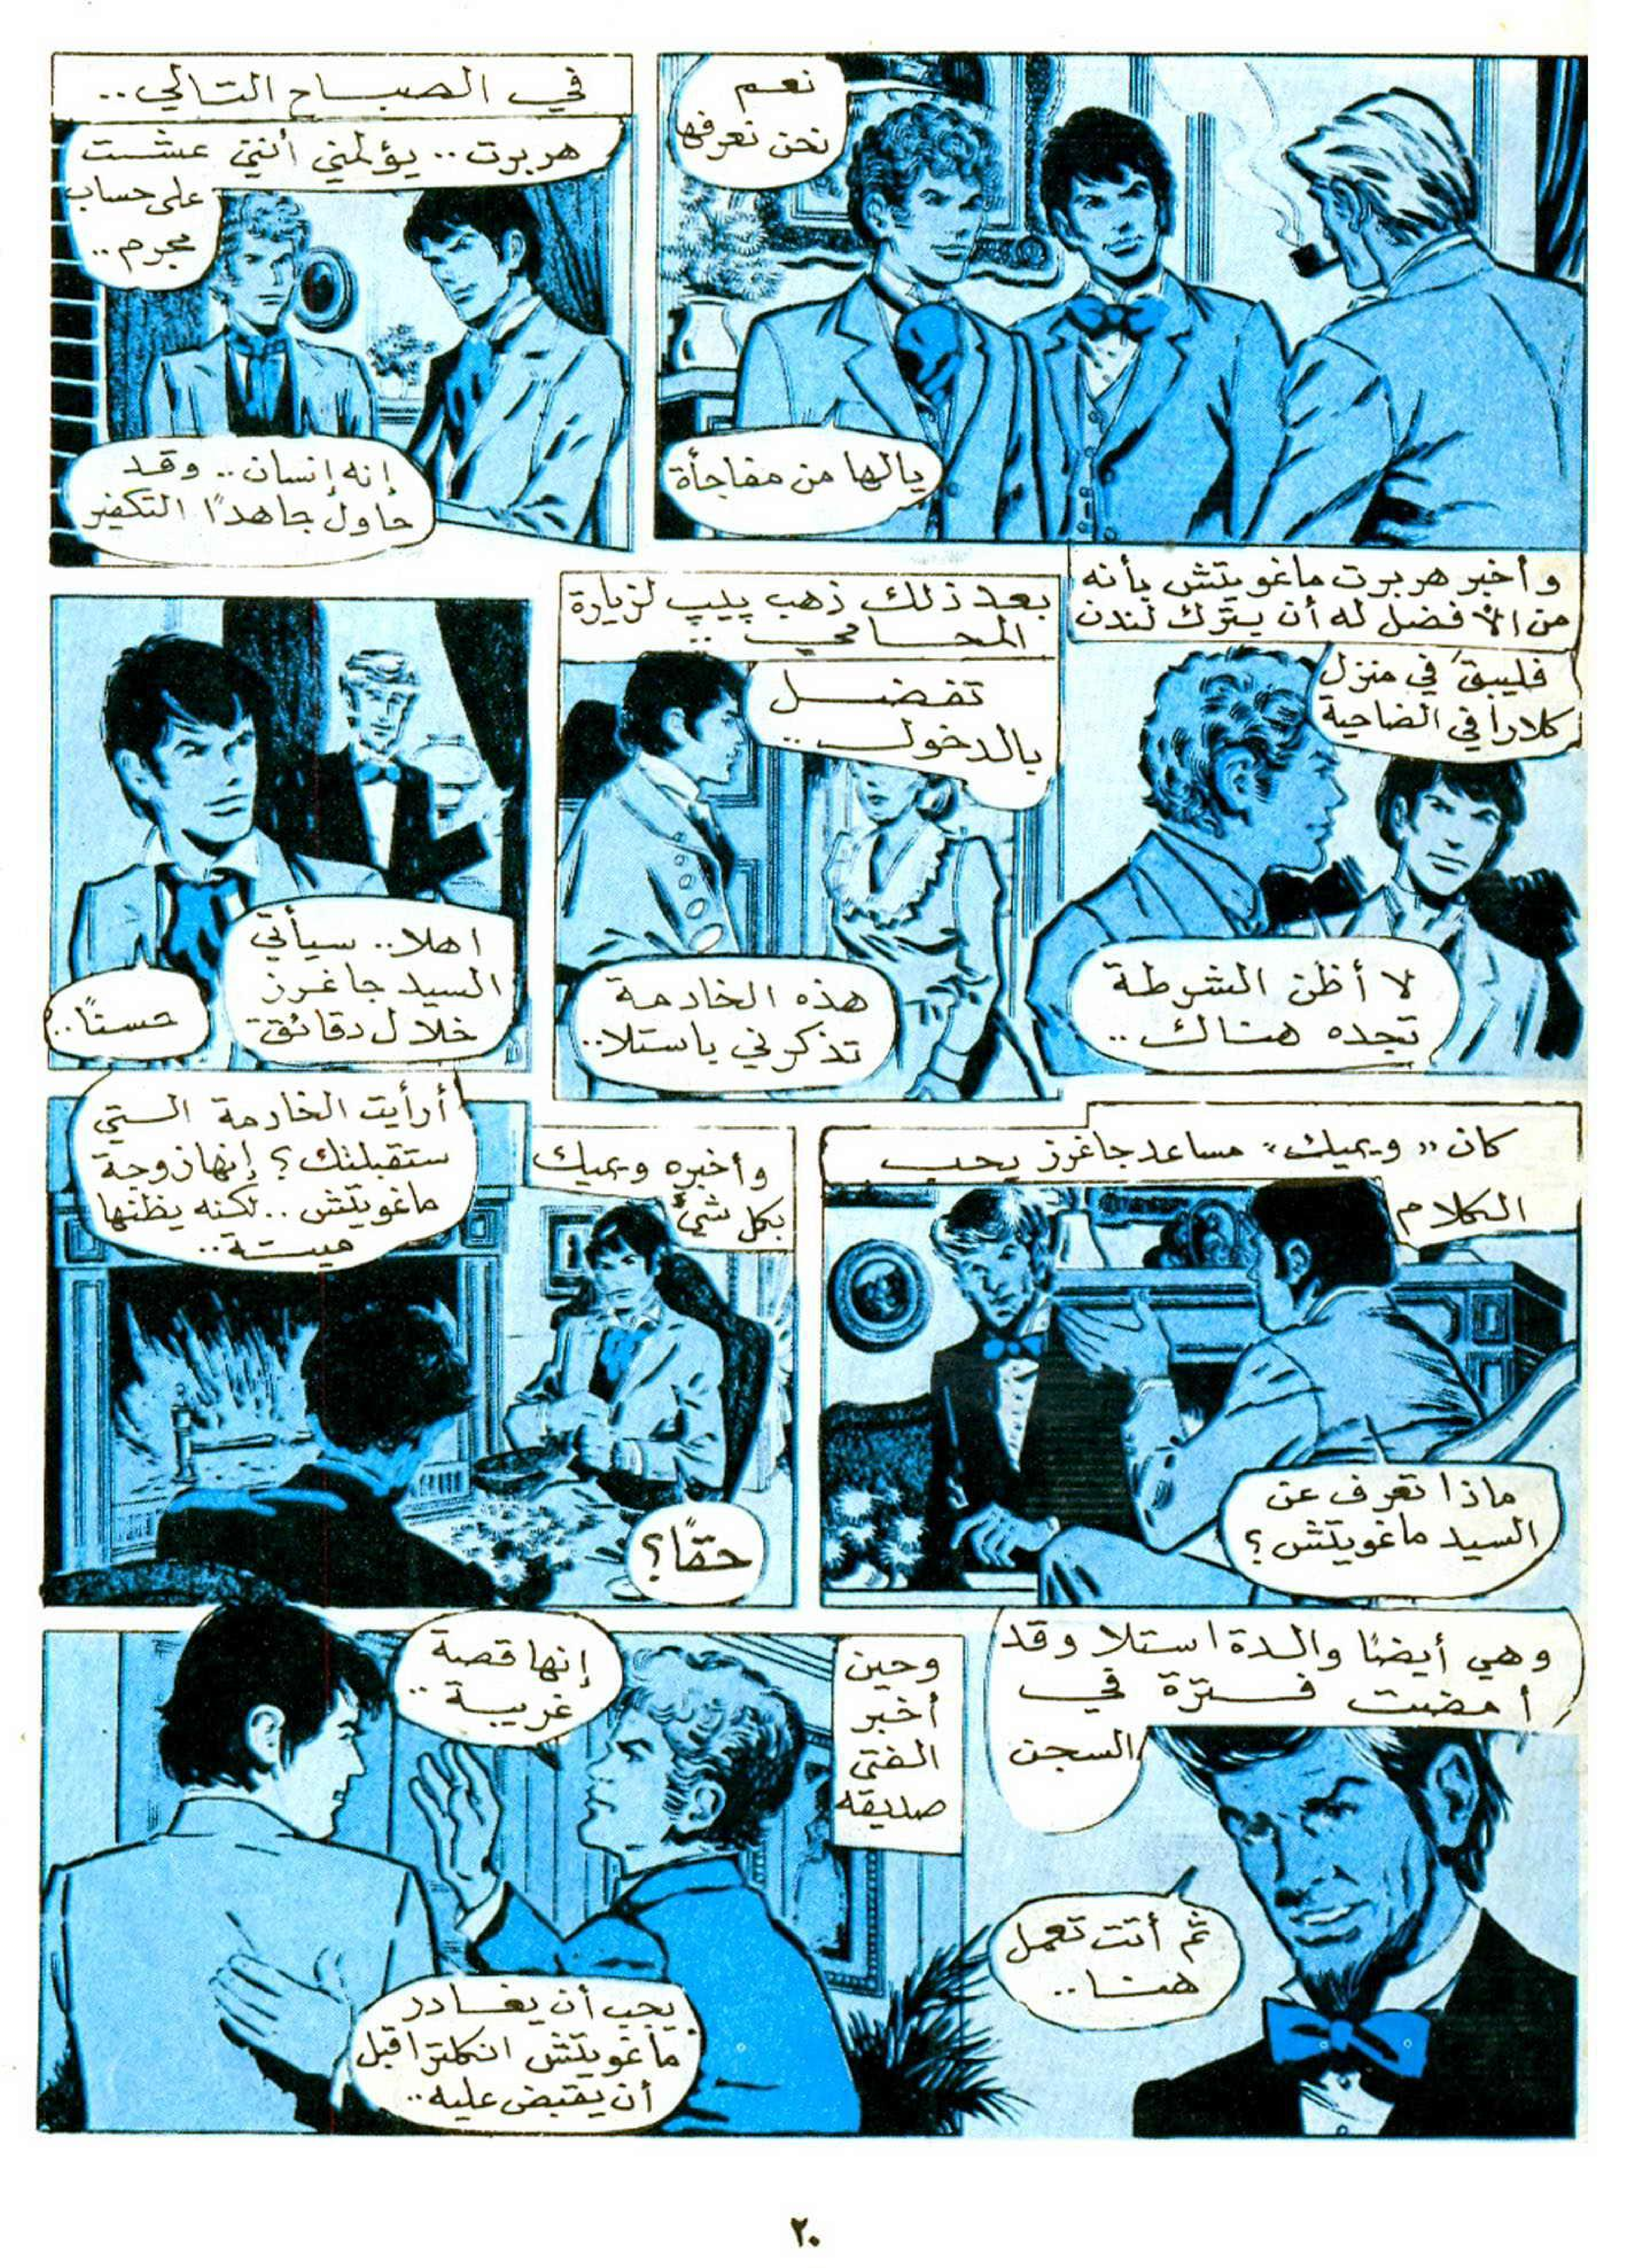 نعم
نحن نعرفها
يالها من مفاجأة
في الصباح التالي..
هربرت.. يؤلمني أنني عشت
على حساب
مجرم..
إنه إنسان.. وقد
حاول جاهدًا التكفير
وأخبر هربرت ماغويتش بأنه
من الأفضل له أن يترك لندن
فليبق في منزل
كلارا في الضاحية
لا أظن الشرطة
تجده هناك..
بعد ذلك ذهب پيپ لزيارة
المحامي..
تفضل
بالدخول..
هذه الخادمة
تذكرني باستلا..
اهلا.. سيأتي
السيد جاغرز
خلال دقائق
حسنًا..
كان «ويميك» مساعد جاغرز يحب
الكلام
ماذا تعرف عن
السيد ماغويتش؟
وأخبره ويميك
بكل شيء
أرأيت الخادمة التي
ستقبلتك؟ إنها زوجة
ماغويتش.. لكنه يظنها
ميتة..
حقًا؟
وهي أيضًا والدة استلا وقد
أمضت فترة في
السجن
ثم أتت تعمل
هنا..
وحين
أخبر
الفتى
صديقه
إنها قصة
غريبة..
يجب أن يغادر
ماغويتش انكلترا قبل
أن يقبض عليه..
٢٠